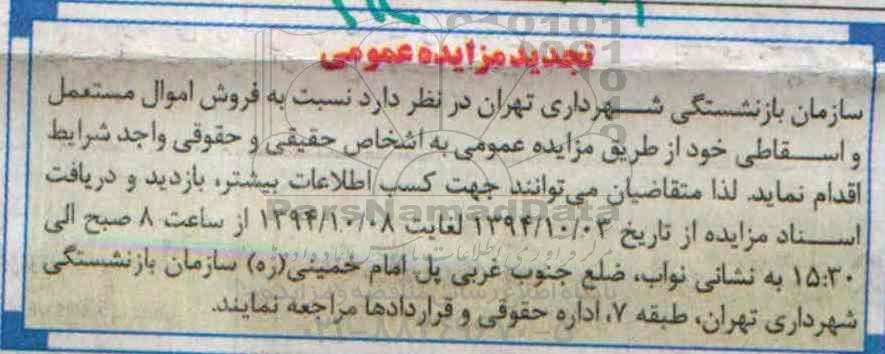 تجدید مزایده عمومی
سازمان بازنشستگی شهرداری تهران در نظر دارد نسبت به فروش اموال مستعمل
و اسقاطی خود از طریق مزایده عمومی به اشخاص حقیقی و حقوقی واجد شرایط
اقدام نماید. لذا متقاضیان می‌توانند جهت کسب اطلاعات بیشتر، بازدید و دریافت
اسناد مزایده از تاریخ ۱۳۹۴/۱۰/۰۳ لغایت ۱۳۹۴/۱۰/۰۸ از ساعت ۸ صبح الی
۱۵:۳۰ به نشانی نواب، ضلع جنوب غربی پل امام خمینی(ره) سازمان بازنشستگی
شهرداری تهران، طبقه ۷، اداره حقوقی و قراردادها مراجعه نمایند.
ParsNamadData